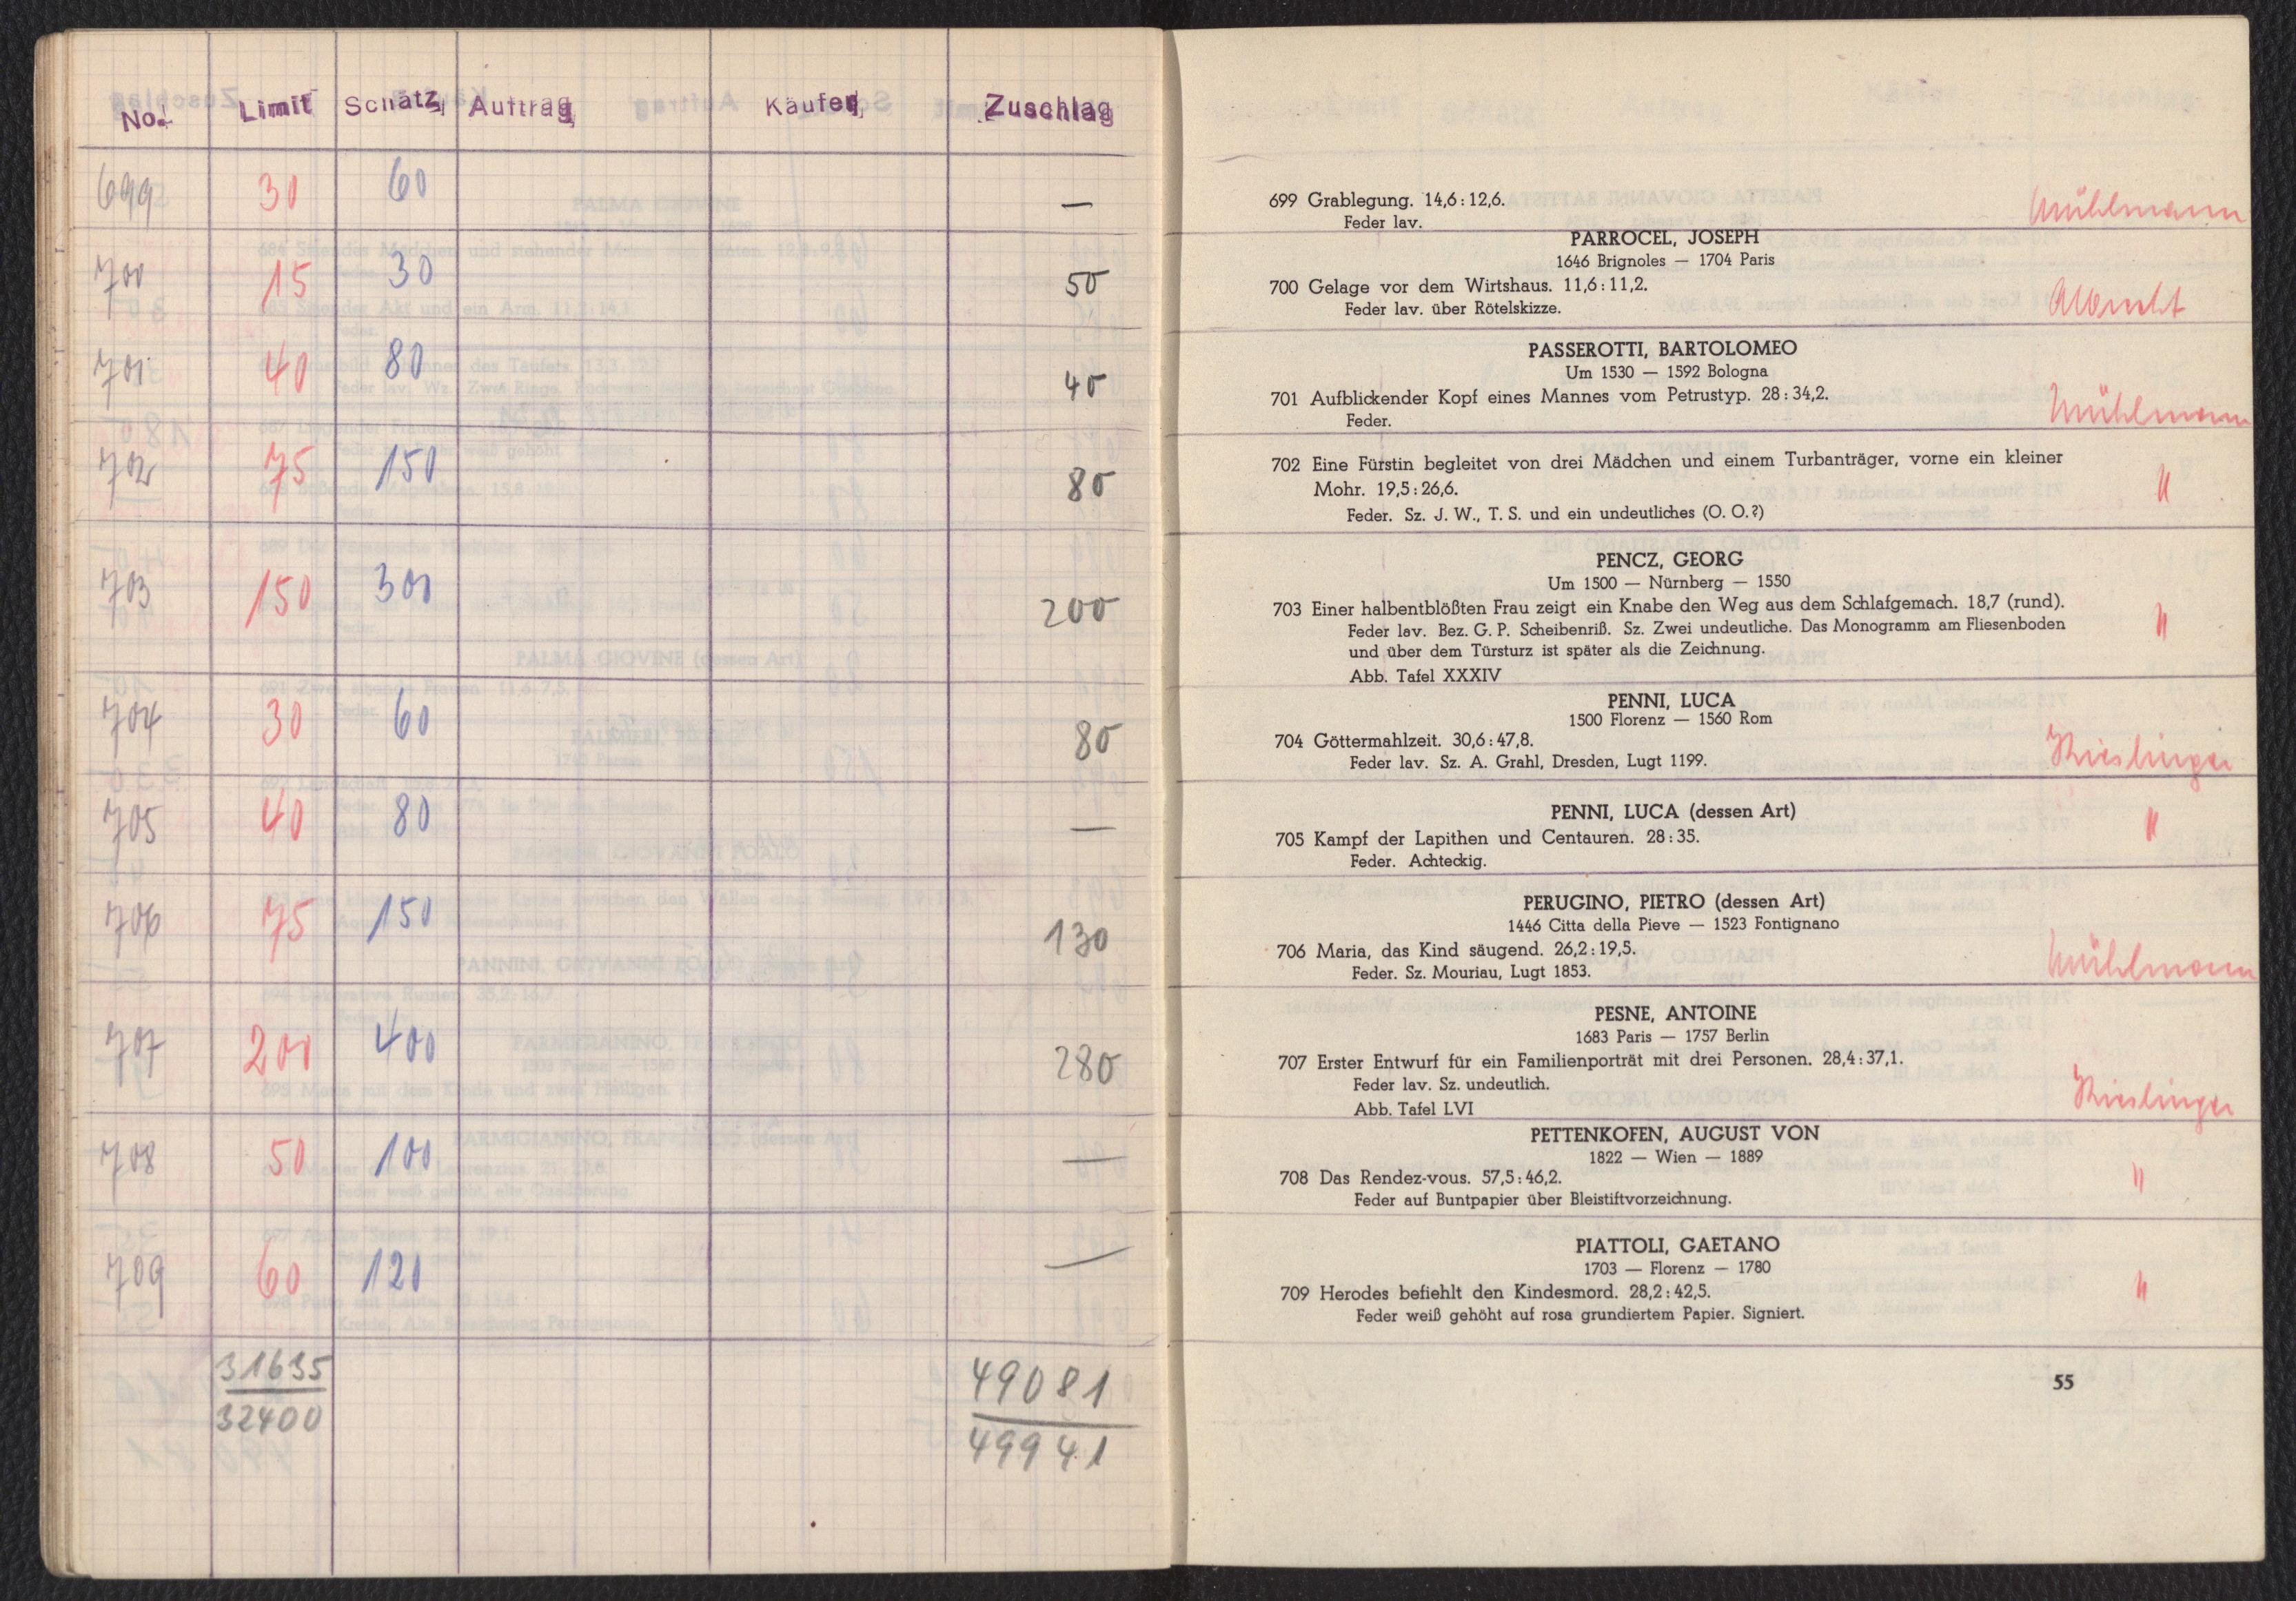 No. Limit Schätz Auftrag Käufer Zuschlag
699 30 60 —
700 15 30 50
701 40 80 40
702 75 150 80
703 150 300 200
704 30 60 80
705 40 80 —
706 75 150 130
707 200 400 280
708 50 100 —
709 60 120 —
31635 49081
32400 49941
699 Grablegung. 14,6 : 12,6. Mühlmann
Feder lav.
PARROCEL, JOSEPH
1646 Brignoles — 1704 Paris
700 Gelage vor dem Wirtshaus. 11,6 : 11,2. Albrecht
Feder lav. über Rötelskizze.
PASSEROTTI, BARTOLOMEO
Um 1530 — 1592 Bologna
701 Aufblickender Kopf eines Mannes vom Petrustyp. 28 : 34,2. Mühlmann
Feder.
702 Eine Fürstin begleitet von drei Mädchen und einem Turbanträger, vorne ein kleiner
Mohr. 19,5 : 26,6. "
Feder. Sz. J. W., T. S. und ein undeutliches (O. O.?)
PENCZ, GEORG
Um 1500 — Nürnberg — 1550
703 Einer halbentblößten Frau zeigt ein Knabe den Weg aus dem Schlafgemach. 18,7 (rund).
Feder lav. Bez. G. P. Scheibenriß. Sz. Zwei undeutliche. Das Monogramm am Fliesenboden "
und über dem Türsturz ist später als die Zeichnung.
Abb. Tafel XXXIV
PENNI, LUCA
1500 Florenz — 1560 Rom
704 Göttermahlzeit. 30,6 : 47,8. Kieslinger
Feder lav. Sz. A. Grahl, Dresden, Lugt 1199.
PENNI, LUCA (dessen Art)
705 Kampf der Lapithen und Centauren. 28 : 35. "
Feder. Achteckig.
PERUGINO, PIETRO (dessen Art)
1446 Citta della Pieve — 1523 Fontignano
706 Maria, das Kind säugend. 26,2 : 19,5. Mühlmann
Feder. Sz. Mouriau, Lugt 1853.
PESNE, ANTOINE
1683 Paris — 1757 Berlin
707 Erster Entwurf für ein Familienporträt mit drei Personen. 28,4 : 37,1.
Feder lav. Sz. undeutlich. Kieslinger
Abb. Tafel LVI
PETTENKOFEN, AUGUST VON
1822 — Wien — 1889
708 Das Rendez-vous. 57,5 : 46,2. "
Feder auf Buntpapier über Bleistiftvorzeichnung.
PIATTOLI, GAETANO
1703 — Florenz — 1780
709 Herodes befiehlt den Kindesmord. 28,2 : 42,5. "
Feder weiß gehöht auf rosa grundiertem Papier. Signiert.
55